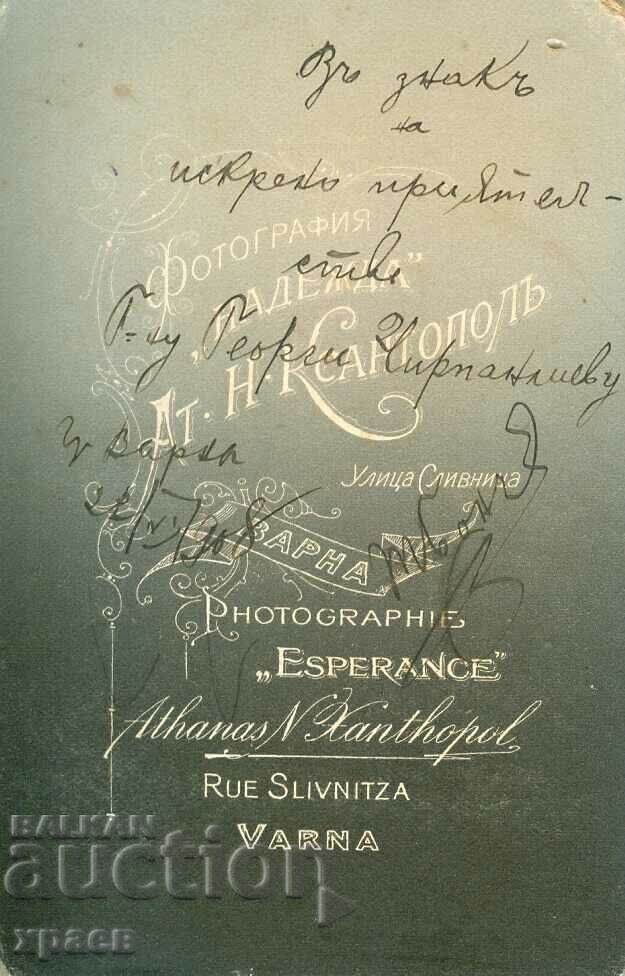 Въ знакъ
на
искрено приятел-
ство
Г-ну Георги Чирпанлиеву
гр Варна
1908
ФОТОГРАФИЯ
„НАДЕЖДА"
АТ. Н. КСАНТОПОЛЪ
УЛИЦА СЛИВНИЦА
ВАРНА
PHOTOGRAPHIE
„ESPERANCE"
Athanas N Xanthopol
RUE SLIVNITZA
VARNA
BALKAN
auction
храев